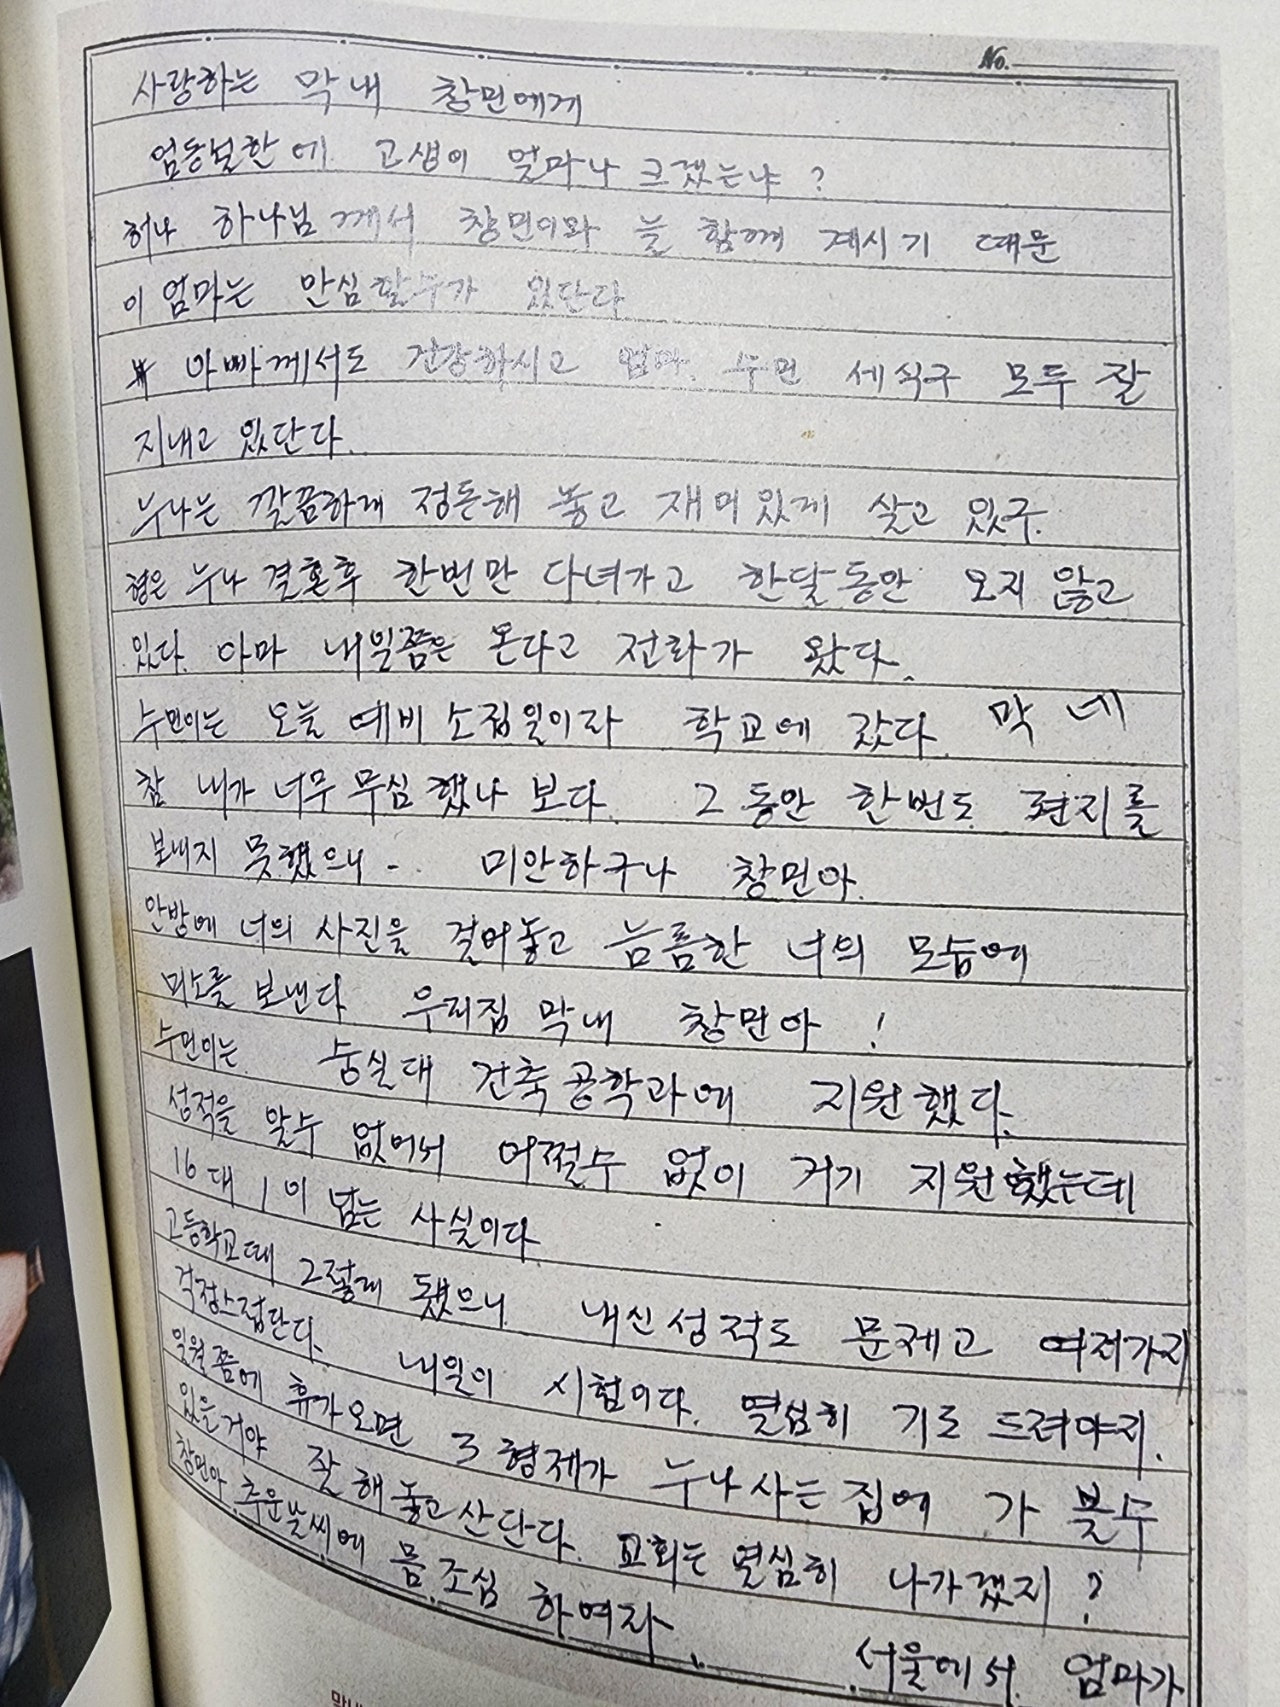 No.
사랑하는 막내 창민에게
엄동설한에 고생이 얼마나 크겠는냐?
허나 하나님께서 창민이와 늘 함께 계시기 때문
이 엄마는 안심할수가 있단다
아빠께서도 건강하시고 엄마, 수민 세식구 모두 잘
지내고 있단다.
누나는 깔끔하게 정돈해 놓고 재미있게 살고 있구.
형은 누나 결혼후 한번만 다녀가고 한달동안 오지 않고
있다. 아마 내일쯤은 온다고 전화가 왔다.
수민이는 오늘 예비소집일이라 학교에 갔다. 막네
참 내가 너무 무심했나 보다. 그동안 한번도 편지를
보내지 못했으니.. 미안하구나 창민아.
안방에 너의 사진을 걸어놓고 늠름한 너의 모습에
미소를 보낸다 우리집 막내 창민아!
수민이는 숭실대 건축공학과에 지원했다.
성적을 알수 없어서 어쩔수 없이 거기 지원했는데
16대 1이 넘는 사실이다.
고등학교때 그렇게 됐으니 내신성적도 문제고 여러가지
걱정스럽단다. 내일이 시험이다. 열심히 기도 드려야지.
일월쯤에 휴가오면 3형제가 누나사는 집에 가 볼수
있을거야 잘해놓고 산단다. 교회는 열심히 나가겠지?
창민아 추운날씨에 몸조심 하여라.
서울에서 엄마가